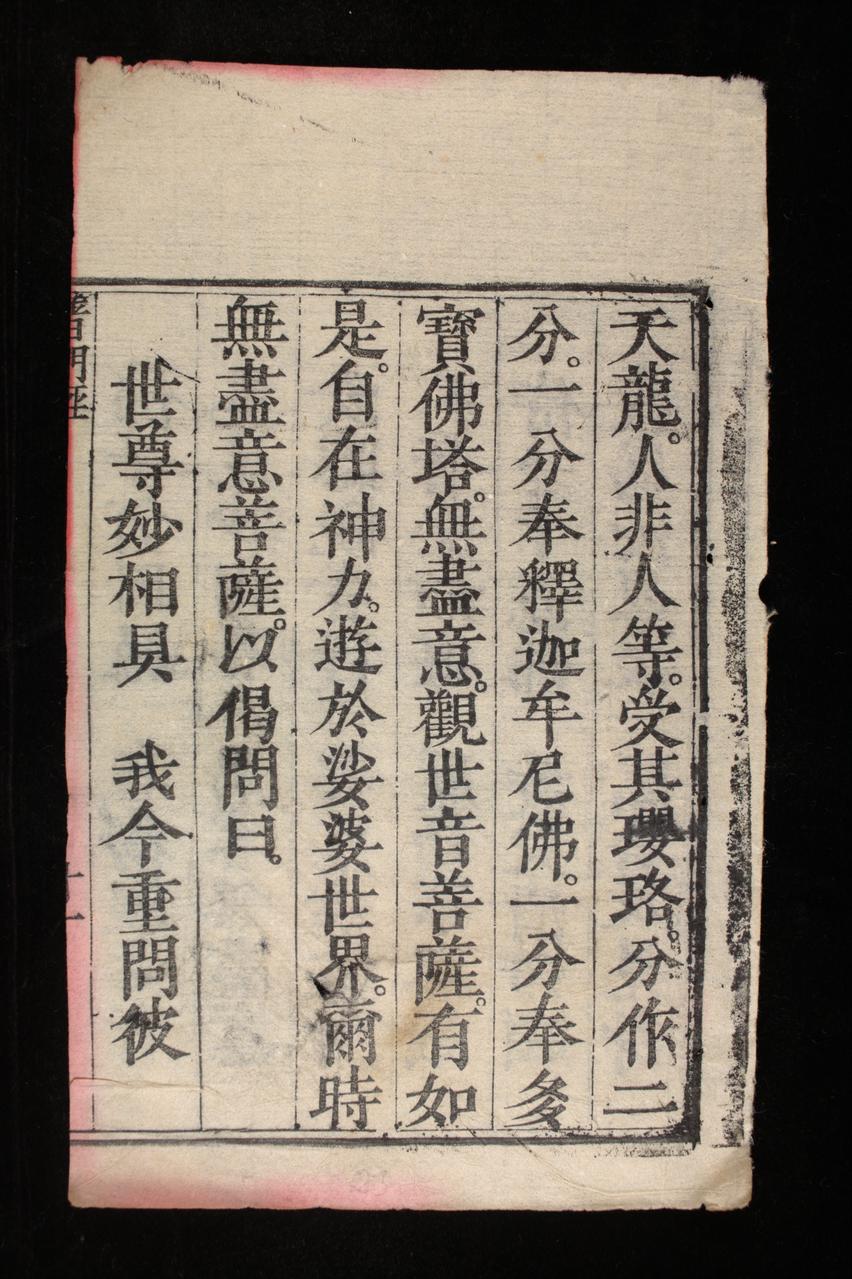 天龍。人非人等。受其瓔珞。分作二
分。一分奉釋迦牟尼佛。一分奉多
寶佛塔。無盡意。觀世音菩薩。有如
是。自在神力。遊於娑婆世界。爾時
無盡意菩薩。以偈問曰。
世尊妙相具　我今重問彼